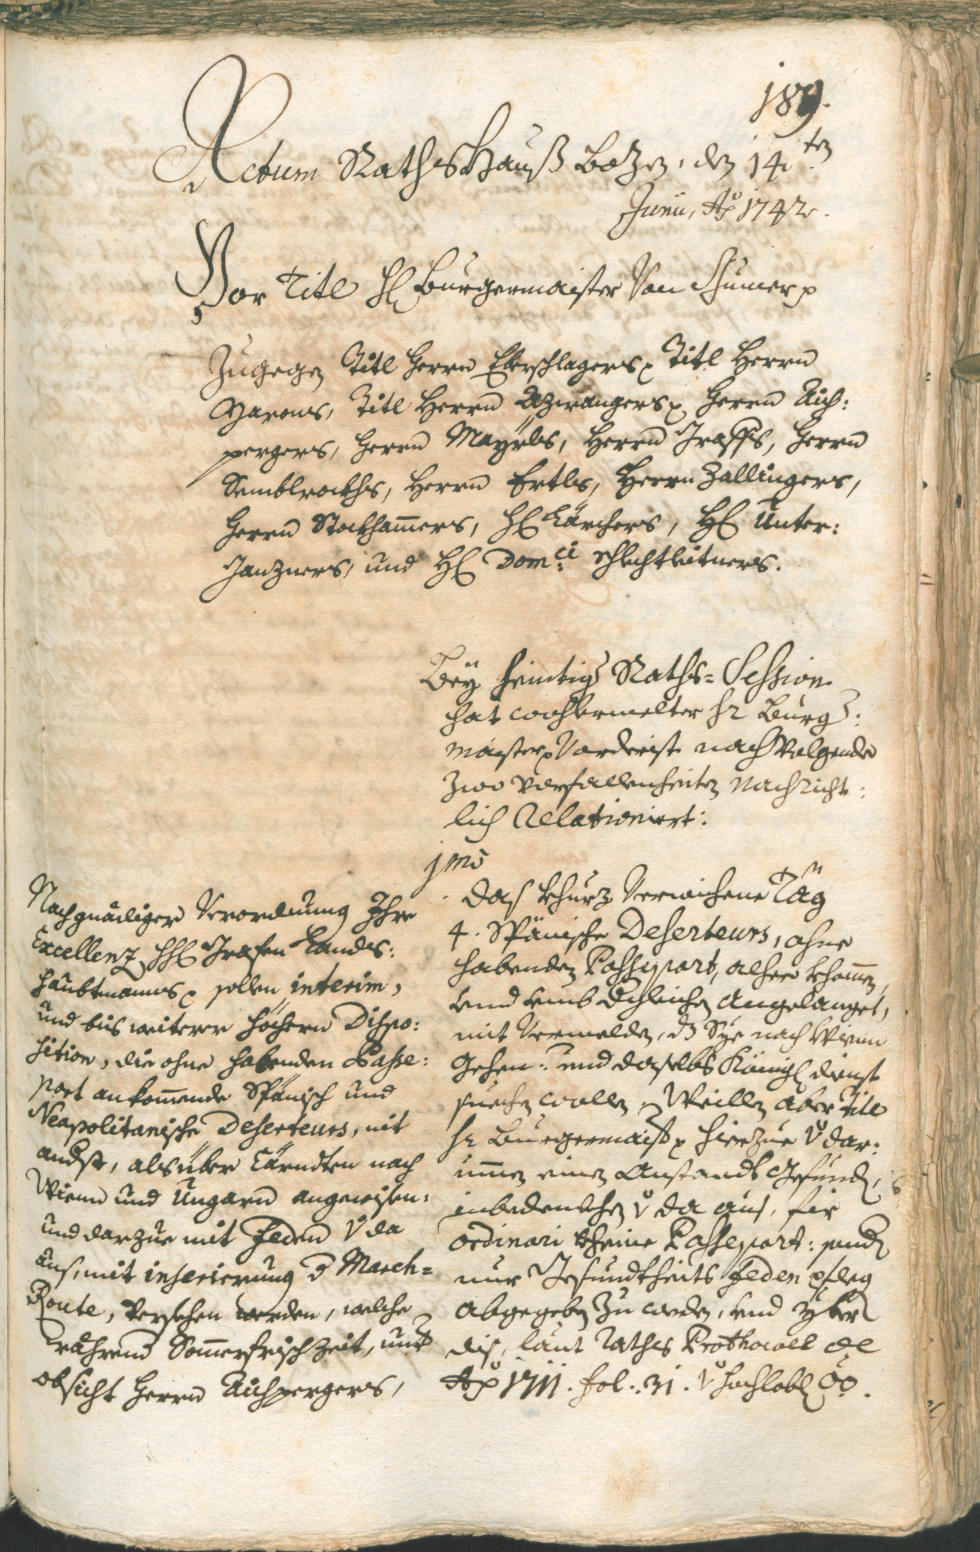 189.
Actum Rathshauß Bozen, den 14.ten
Junii, Ao 1742.
Vor Titl Hl Burgermaister Von Rumer p
Zugegen Titl Herrn Eberschlagers p Titl Herrn
Herrn Aich:
pergers, Herrn Mayrls, Herrn Graffs, Herrn
Semblrockhs, Herrn Ertls, Herrn Zallingers,
Herrn Stockhamers, Hl Kärchers, Hl Unter:
Janzners, und Hl Domci Schlechtleitners.
Bey heintiger Raths-Session
hat wohlermelter Hr Burger:
maister p Vorderist nachvolgende
zwo Vorfallenheiten Nachricht:
lich Relationiert:
1mo
Das khurz Verwichene Täg
4. Spänische Deserteurs, ohne
habenden Passeport, alher khomen,
und umb angelanget,
mit Vermelden, dz Sye nach Wienn
gehen: und daselbs Königl dienst
suechen wollen, Weillen aber Titl
Hr Burgermaister p hierzue V dar:
umen einen Anstandt Gefunden,
inbedenkhen V da aus, fir
ordinari kheine Passeport: sondern
nur Gesundtheits feden pfleg
abgegeben zu werden, und yber
dis, laut Raths Prothocoll de
Ao 1711. fol: 31. V hochlobl OÖ.
Nach gnädiger Verordnung Ihro
Excellenz HHl Grafen Landts:
haubtmanns p sollen interim,
und bis weiterer höchern Dispo:
sition, die ohne habenden Passe:
port ankomende Spänisch und
Neapolitanische Deserteurs, nit
anderst, als über Kärndten nach
Wienn und Ungarn angewisen:
und darzue mit feden V da
aus, mit inserierung der March=
Route, Versehen werden, welche
während Somerfrisch Zeit, und
obsicht Herrn Aichpergers,